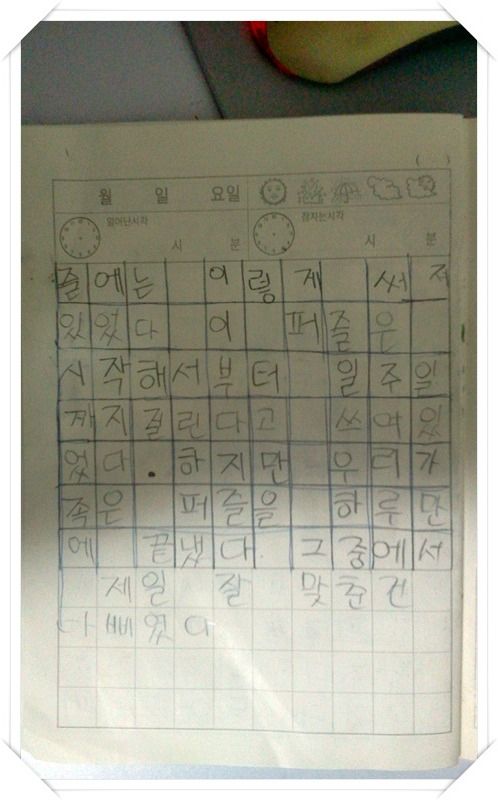 ( )
월 일 요일
일어난시각 시 분 잠자는시각 시 분
줄에는 이렇게 써져
있었다 이 퍼즐은
시작해서부터 일주일
까지 걸린다고 쓰여있
었다. 하지만 우리가
족은 퍼즐을 하루만
에 끝냈다. 그중에서
제일 잘 맞춘건
아빠였다